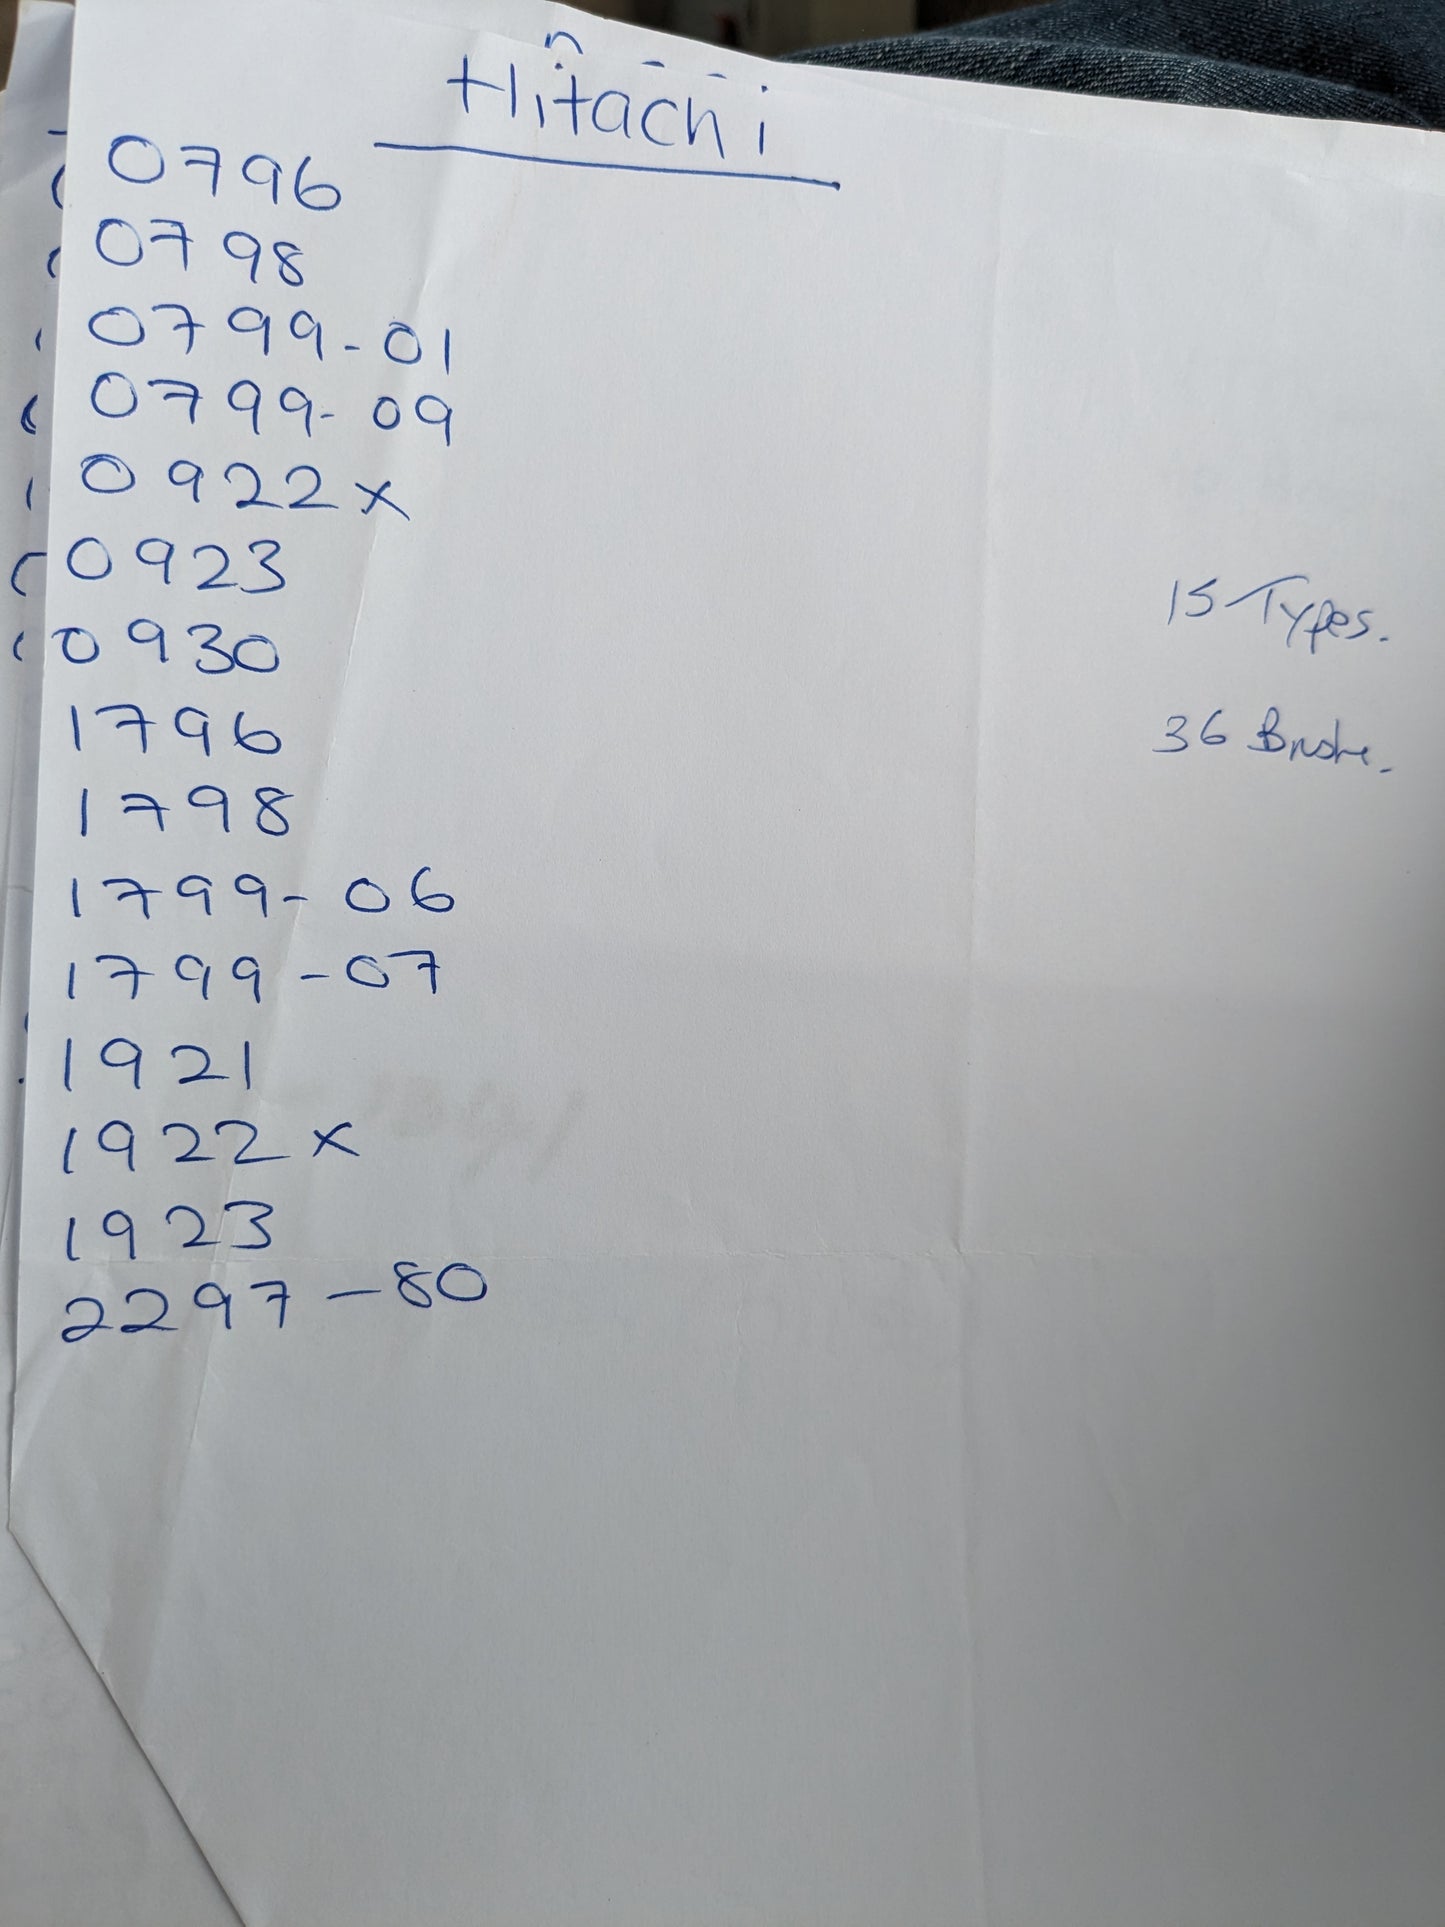 Hitachi
0796
0798
0799-01
0799-09
0922x
0923
0930
1796
1798
1799-06
1799-07
1921
1922x
1923
2297-80
15 Types.
36